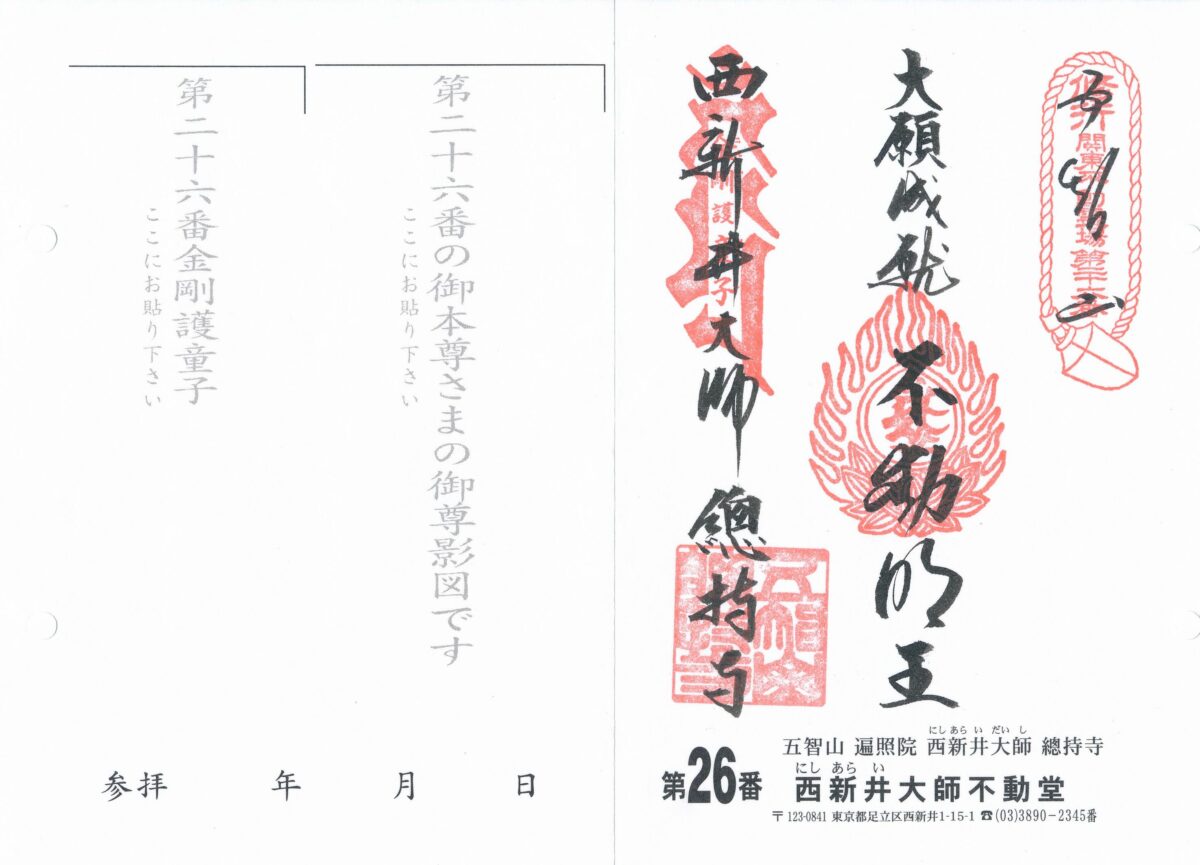 大願成就
不動明王
西新井大師 總持寺
第26番
五智山 遍照院 西新井大師 總持寺
にしあらいだいし
西新井大師不動堂
にしあらい
〒123-0841 東京都足立区西新井1-15-1 ☎(03)3890-2345番
第二十六番の御本尊さまの御尊影図です
ここにお貼り下さい
第二十六番金剛護童子
ここにお貼り下さい
参拝 年 月 日